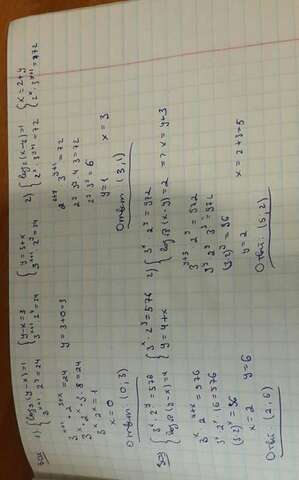 1) { log₃(y-x)=1
3ˣ⁺¹ · 2ʸ=24
{ y-x=3
3ˣ⁺¹ 2ʸ=24
{ y=3+x
3ˣ⁺¹ 2ʸ=24
3ˣ⁺¹ · 2³⁺ˣ=24
3ˣ · 2ˣ · 3 · 8=24
3ˣ · 2ˣ=1
x=0
y=3+0=3
Ответ (0,3)
2) { log₂(x-y)=1
2ˣ · 3ʸ⁺¹=72
{ x=2+y
2ˣ · 3ʸ⁺¹=72
2²⁺ʸ 3ʸ⁺¹=72
2ʸ 3ʸ 4·3=72
2ʸ 3ʸ=6
y=1
x=3
Ответ (3,1)
{ 3ˣ · 2ʸ=576
y=4+x
3ˣ · 2⁴⁺ˣ=576
3ˣ 2ˣ 16=576
(3·2)ˣ=36
x=2
y=6
Отв: (2,6)
2) { 3ˣ · 2ʸ=972
log√3(x-y)=2 => x=y+3
3ʸ⁺³ · 2ʸ=972
3ʸ 2ʸ 3³=972
(3·2)ʸ=36
y=2
x=2+3=5
Ответ: (5,2)